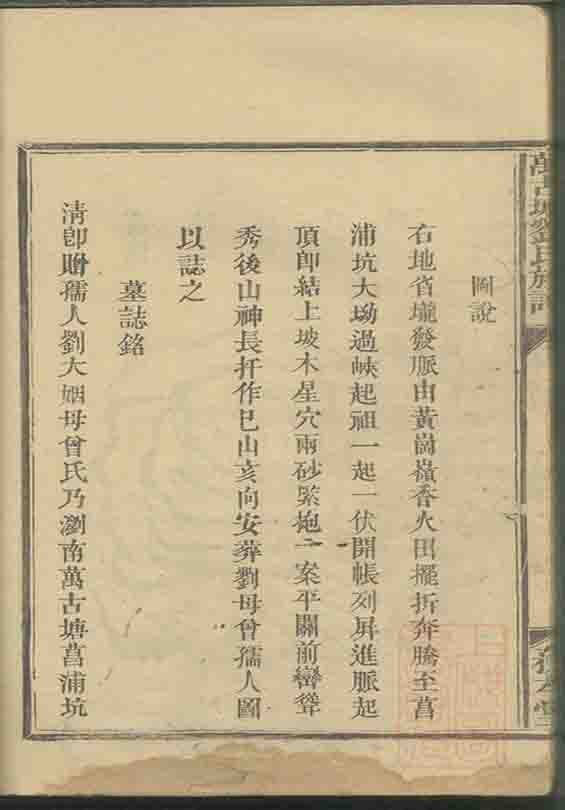 萬古塘劉氏族譜
圖說
右地省壠發脈由黃崗嶺香火田擺折奔騰至菖
浦坑大坳過峽起祖一起一伏開帳列屏進脈起
頂卽結上坡木星穴兩砂緊抱一案平關前巒聳
秀後山神長扦作巳山亥向安葬劉母曾孺人圖
以誌之
墓誌銘
清卽贈孺人劉大姻母曾氏乃瀏南萬古塘菖浦坑